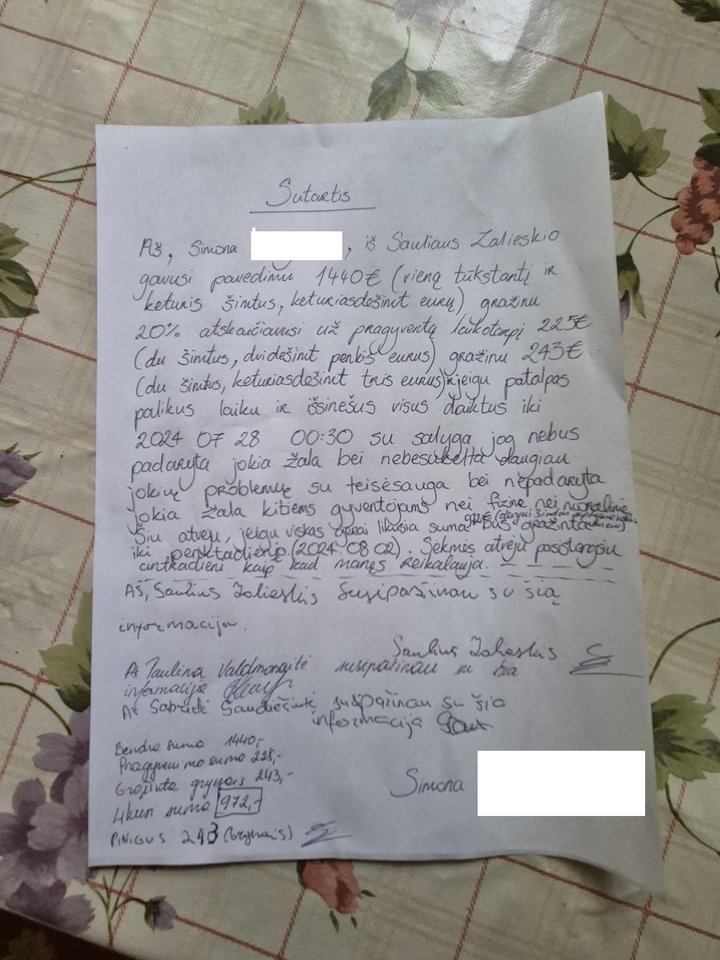 Sutartis
Aš, Simona , iš Sauliaus Zalieskio
gavusi pavedimu 1440€ (vieną tūkstantį ir
keturis šimtus, keturiasdešimt eurų) gražinu
20% atskaičiavusi už pragyventą laikotarpį 225€
(du šimtus, dvidešimt penkis eurus) gražinu 243€
(du šimtus, keturiasdešimt tris eurus) jeigu patalpas
palikus laiku ir išsinešus visus daiktus iki
2024 07 28 00:30 su salyga jog nebus
padaryta jokia žala bei nebesukelta daugiau
jokių problemų su teisėsauga bei nepadaryta
jokia žala kitiems gyventojams nei fizinė nei moralinė
Šiu atveju, jeigu viskas gerai likusia suma bus gražinta
iki penktadienio (2024 08 02). Sėkmės atveju pasistengsiu
antradieni kaip kad manęs reikalauja.
Aš, Saulius Zalieskis susipažinau su šią
informaciju.
Saulius Zalieskis
Aš Paulina susipažinau su šia
informacija
Aš Gabrielė susipažinau su šio
informacija
Bendra suma 1440,-
Pragyvenimo suma 225,-
Gražinta grynais 243,-
Likusi suma 972,-
Simona
PINIGUS 243 (Grynais)